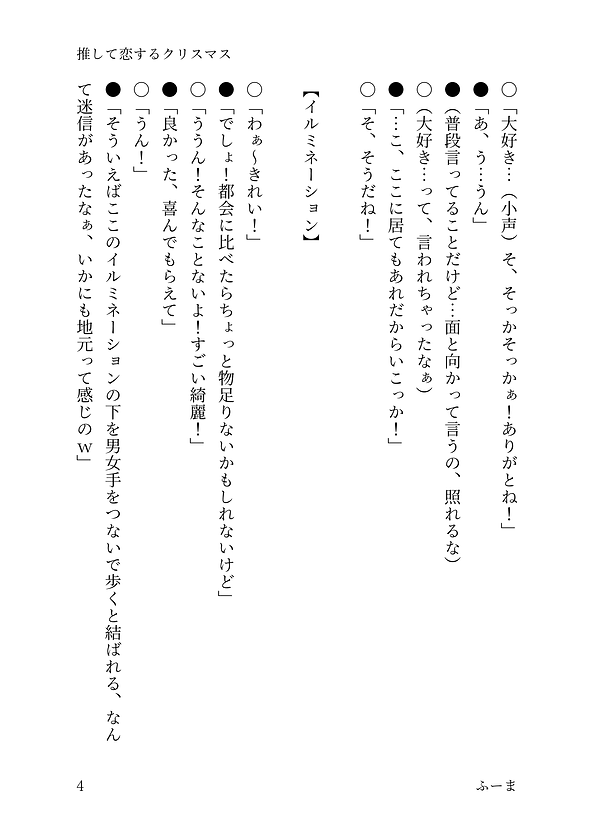 推して恋するクリスマス
○「大好き…（小声）そ、そっかそっかぁ！ありがとね！」
●「あ、う…うん」
●（普段言ってることだけど…面と向かって言うの、照れるな）
○（大好き…って、言われちゃったなぁ）
●「…こ、ここに居てもあれだからいこっか！」
○「そ、そうだね！」
【イルミネーション】
○「わぁ～きれい！」
●「でしょ！都会に比べたらちょっと物足りないかもしれないけど」
○「ううん！そんなことないよ！すごい綺麗！」
●「良かった、喜んでもらえて」
○「うん！」
●「そういえばここのイルミネーションの下を男女手をつないで歩くと結ばれる、なん
て迷信があったなぁ、いかにも地元って感じのｗ」
4
ふーま